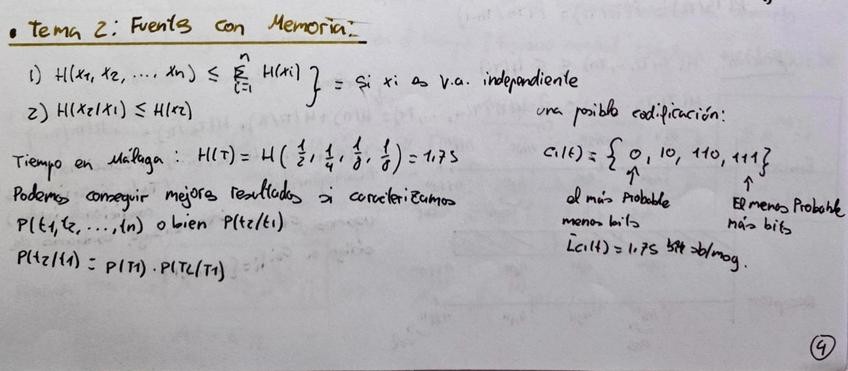 • Tema 2: Fuentes con Memoria:
1) H(x1, x2, ... xn) ≤ Σ_{i=1}^{n} H(xi) } = si xi es v.a. independiente
2) H(x2/x1) ≤ H(x2)
una posible codificación:
Tiempo en Málaga: H(T) = H(1/2, 1/4, 1/8, 1/8) = 1,75
C1(t) = { 0, 10, 110, 111 }
Podemos conseguir mejores resultados si caracterizamos
P(t1, t2, ..., tn) o bien P(t2/t1)
P(t2/t1) = P(T1) · P(T2/T1)
el más Probable
menos bits
El menos Probable
más bits
L̄c1(t) = 1,75 b/msg.
4